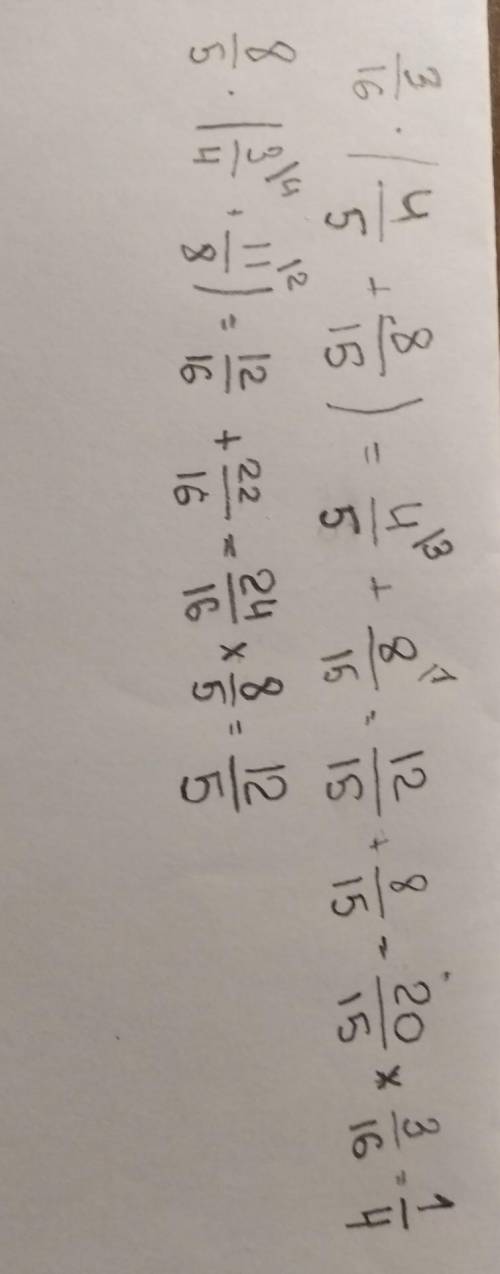 3/16 · (4/5 + 8/15) = 4/5 \3 + 8/15 \1 = 12/15 + 8/15 = 20/15 × 3/16 = 1/4
8/5 · (3/4 \4 + 11/8 \2) = 12/16 + 22/16 = 24/16 × 8/5 = 12/5